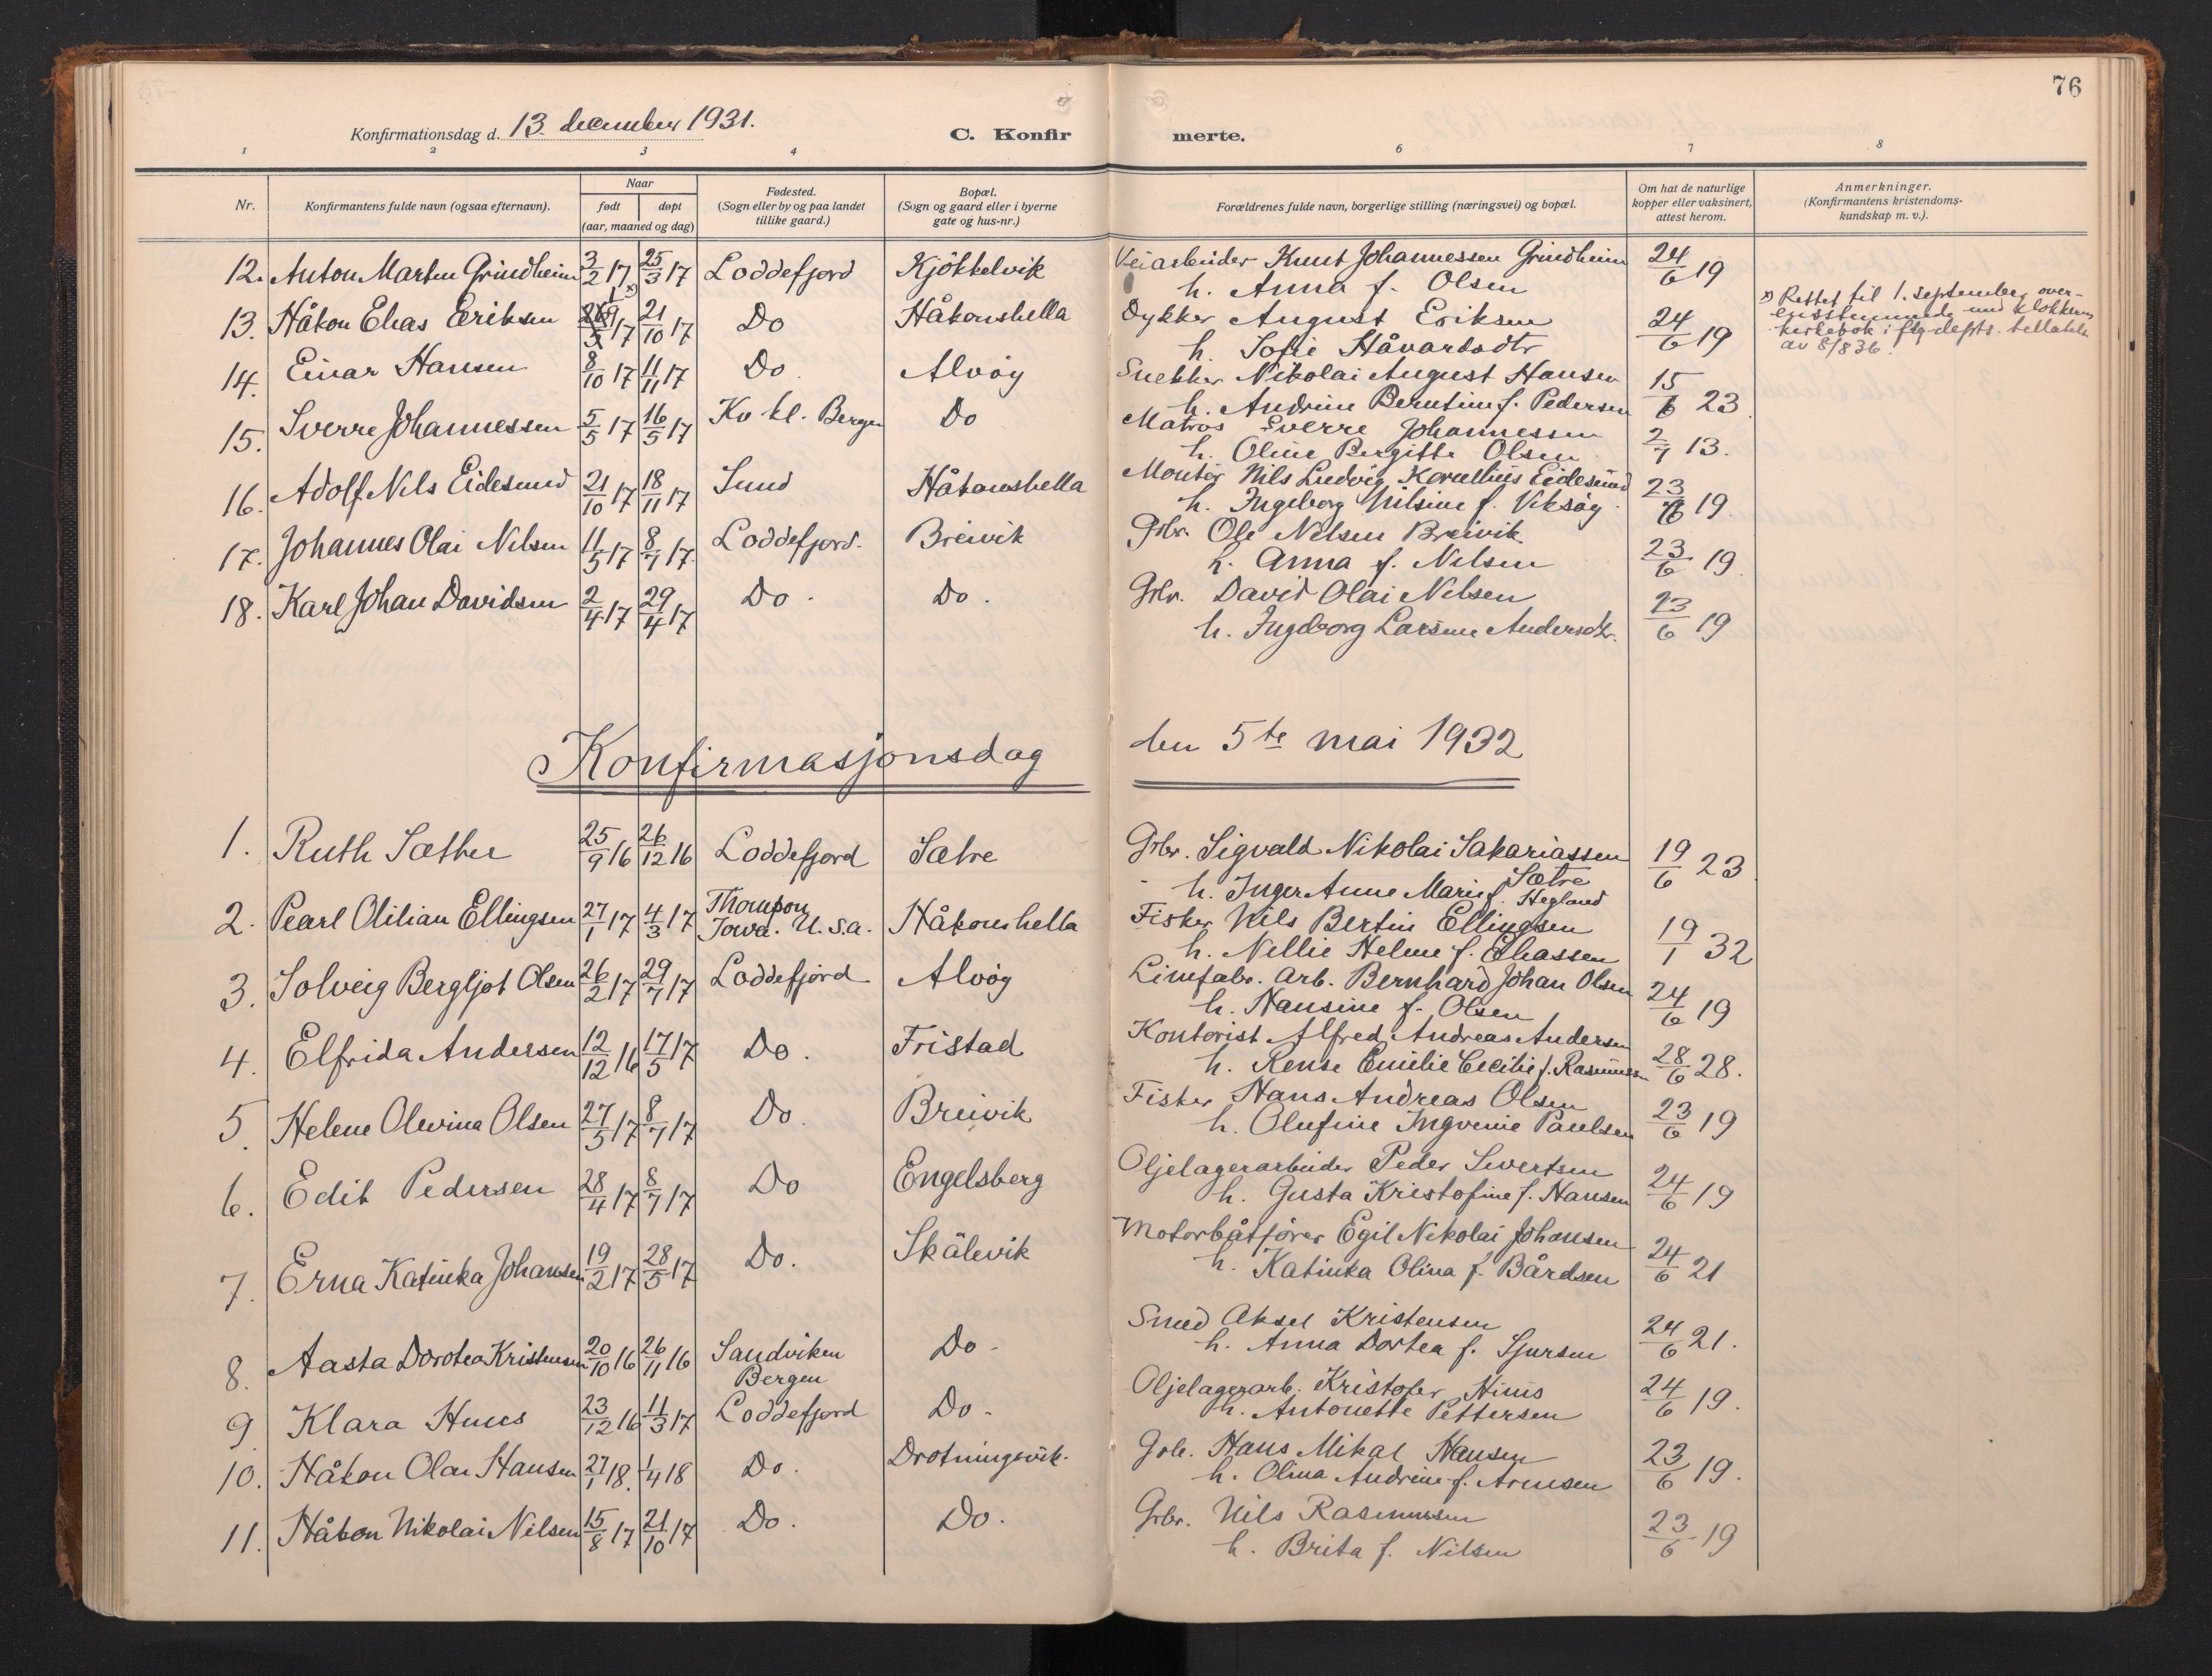 76
Konfirmationsdag d. 13. december 1931.
C. Konfirmerte.
1 2 3 4 6 7 8
Nr.
Konfirmantens fulde navn (ogsaa efternavn).
Naar
født døpt
(aar, maaned og dag)
Fødested.
(Sogn eller by og paa landet
tillike gaard.)
Bopæl.
(Sogn og gaard eller i byerne
gate og hus-nr.)
Forældrenes fulde navn, borgerlige stilling (næringsvei) og bopæl.
Om hat de naturlige
kopper eller vaksinert,
attest herom.
Anmerkninger.
(Konfirmantens kristendoms-
kundskap m. v.).
12. Anton Martin Grindheim 3/2 17 25/3 17 Loddefjord Kjøkkelvik Veiarbeider Knut Johannessen Grindheim 24/6 19
h. Anna f. Olsen
13. Håkon Elias Eriksen 1 x) /9 17 21/10 17 Do Håkonshella Dykker August Eriksen 24/6 19
h. Sofie Håvardsdtr
x) Rettet til 1. september over-
ensstemmende med klokkerens
kirkebok i flg. depts. tillatelse
av 8/8 36.
14. Einar Hansen 8/10 17 11/11 17 Do. Alvøy Snekker Nikolai August Hansen 15/6 23.
h. Andrine Berntine f. Pedersen
15. Sverre Johannessen 5/5 17 16/5 17 Kv kl. Bergen Do Matros Sverre Johannessen 2/7 13.
h. Oline Bergitte Olsen
16. Adolf Nils Eidesund 21/10 17 18/11 17 Sund Håkonshella Montør Nils Ludvig Kornelius Eidesund 23/6 19.
h. Ingeborg Nilsine f. Viksøy.
17. Johannes Olai Nilsen 11/5 17 8/7 17. Loddefjord. Breivik Grbr. Ole Nilsen Breivik 23/6 19.
h. Anna f. Nilsen
18. Karl Johan Davidsen 2/4 17 29/4 17 Do. Do. Grbr. David Olai Nilsen 23/6 19
h. Ingeborg Larsine Andersdtr.
Konfirmasjonsdag den 5te mai 1932
1. Ruth Sæther 25/9 16 26/12 16 Loddefjord Sætre Grbr. Sigvald Nikolai Sakariassen 19/6 23
Sætre
h. Inger Anne Marie f. Hegland
2. Pearl Olilian Ellingsen 27/1 17 4/3 17 Thompson Håkonshella Fisker Nils Bertin Ellingsen 19/1 32
Iowa. U.S.a.
h. Nellie Helene f. Eliassen
3. Solveig Bergljot Olsen 26/2 17 29/7 17 Loddefjord Alvøy Limfabr. arb. Bernhard Johan Olsen 24/6 19
h. Hansine f. Olsen
4. Elfrida Andersen 12/12 16 17/5 17 Do. Fristad Kontorist Alfred Andreas Andersen 28/6 28.
h. Rense Emilie Cecilie f. Rasmussen
5. Helene Olevina Olsen 27/5 17 8/7 17 Do. Breivik Fisker Hans Andreas Olsen 23/6 19
h. Olufine Ingvenie Paulsen
6. Edit Pedersen 28/4 17 8/7 17 Do Engelsberg Oljelagerarbeider Peder Sivertsen 24/6 19
h. Gusta Kristofine f. Hansen
7. Erna Katinka Johansen 19/2 17 28/5 17 Do. Skålevik Motorbåtfører Egil Nikolai Johansen 24/6 21
h. Katinka Olina f. Bårdsen
8. Aasta Dorotea Kristensen 20/10 16 26/11 16 Sandviken Do. Smed Aksel Kristensen 24/6 21.
Bergen
h. Anna Dortea f. Sjursen
9. Klara Huus 23/12 16 11/3 17 Loddefjord Do. Oljelagerarb. Kristofer Huus 24/6 19.
h. Antonette Pettersen
10. Håkon Olai Hansen 27/1 18. 1/4 18 Do. Drotningsvik. Grbr. Hans Mikal Hansen 23/6 19.
h. Olina Andrine f. Arnesen
11. Håkon Nikolai Nilsen 15/8 17 21/10 17 Do. Do. Grbr. Nils Rasmussen 23/6 19
h. Brita f. Nilsen